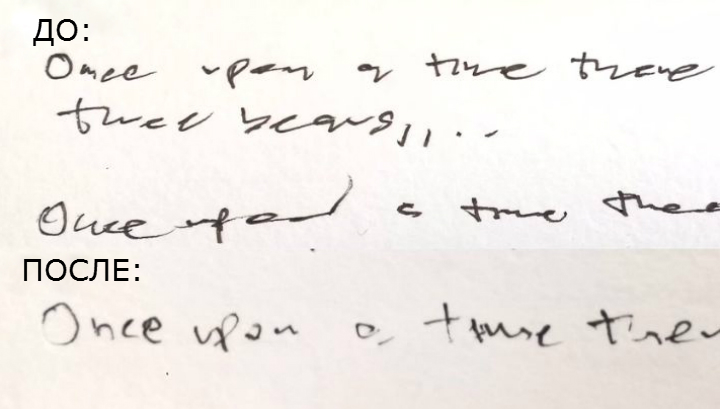 ДО:
Once upon a time there
three bears,,, ..
Once upon a time the
ПОСЛЕ:
Once upon a time ther